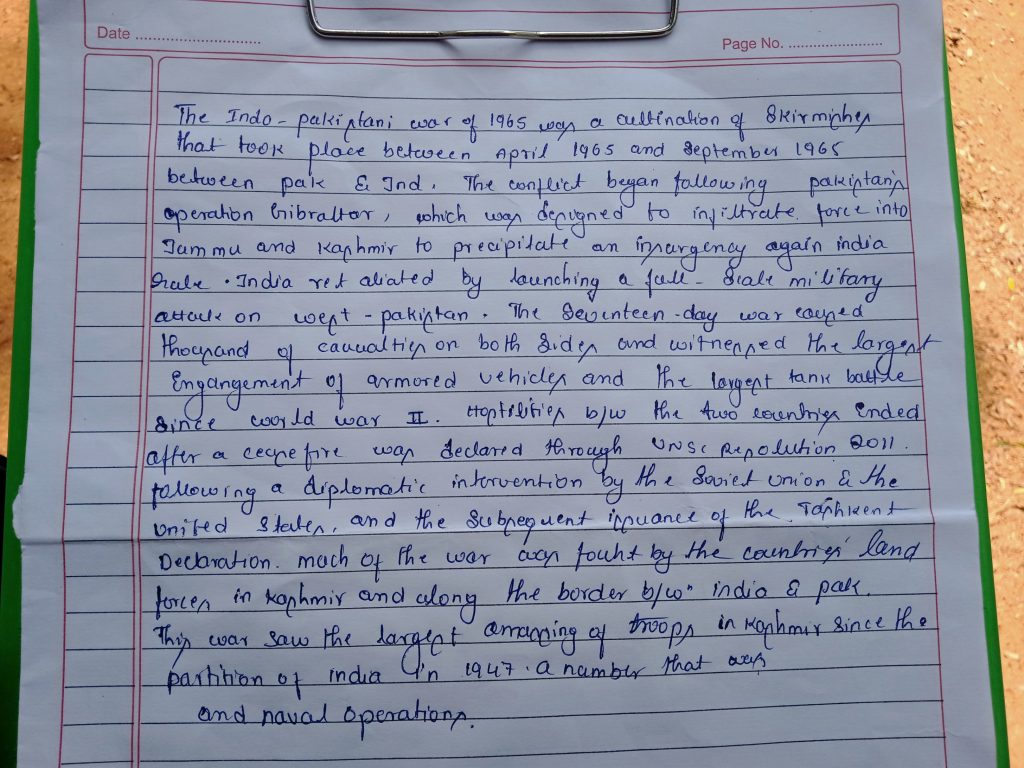 Date ..............................
Page No. ......................
The Indo-pakistani war of 1965 was a cultination of Skirmishes
that took place between April 1965 and September 1965
between pak & Ind. The conflict began following pakistan's
operation Gibraltar, which was designed to infiltrate force into
Jammu and Kashmir to precipitate an insurgency again india
Rule. India ret aliated by launching a full-Scale military
attack on west-pakistan. The Seventeen-day war caused
thousand of causalties on both Sides and witnessed the largest
Engangement of armored vehicles and the largest tank battle
Since world war II. Hostilities b/w the two countries Ended
after a ceasefire was declared through UNSC Resolution 2011.
following a diplomatic intervention by the Soviet Union & the
United States, and the Subsequent issuance of the Tashkent
Declaration. much of the war was fouht by the countries' land
forces in Kashmir and along the border b/w" india & pak.
This war saw the largest amassing of troops in Kashmir since the
partition of india in 1947. a number that was
and naval operations.